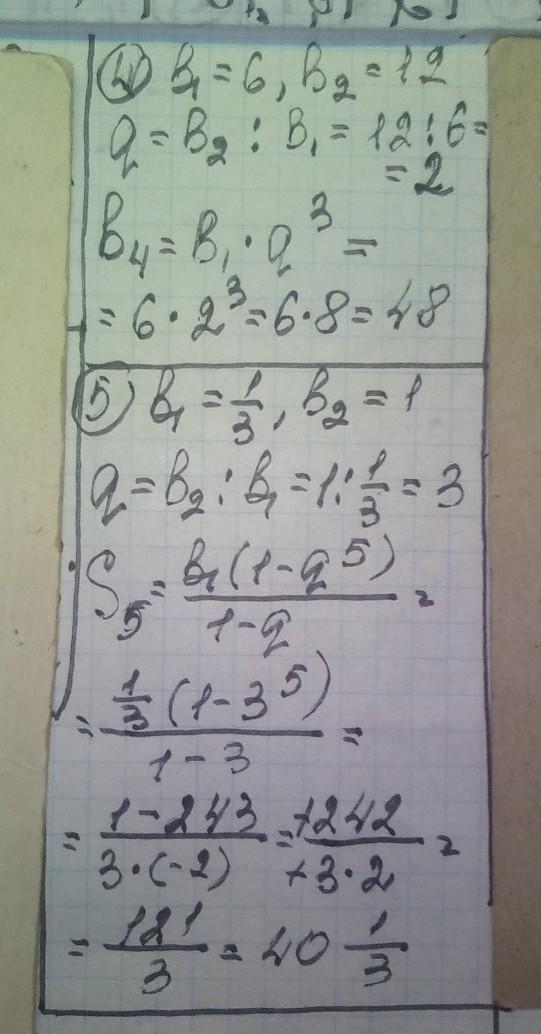 ④ b₁ = 6, b₂ = 12
q = b₂ : b₁ = 12 : 6 =
= 2
b₄ = b₁ · q³ =
= 6 · 2³ = 6 · 8 = 48
⑤ b₁ = 1/3, b₂ = 1
q = b₂ : b₁ = 1 : 1/3 = 3
S₅ = b₁(1 - q⁵)/(1 - q) =
= 1/3 (1 - 3⁵)/(1 - 3) =
= (1 - 243)/(3 · (-2)) = +242/(+3 · 2) =
= 121/3 = 40 1/3